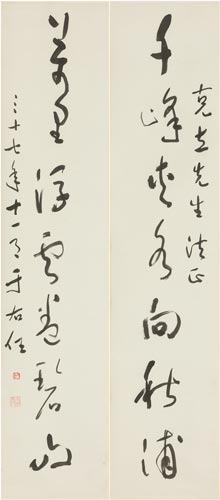 克立先生法正
千峰夾水向秋浦
萬里浮雲卷碧山
三十七年十一月 于右任